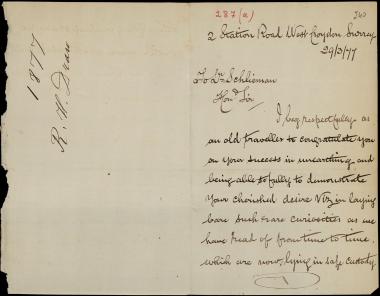 1877
R. W. Draw
287 (a)
2 Station Road West Croydon Surrey
29/3/77
To Dr Schlieman
Hond Sir
I beg respectfully as
an old traveller to congratulate you
on your success in unearthing and
being able so fully to demonstrate
your cherished desire Viz in laying
bare such rare curiosities as we
have read of from time to time,
which are now, lying in safe custody.
1